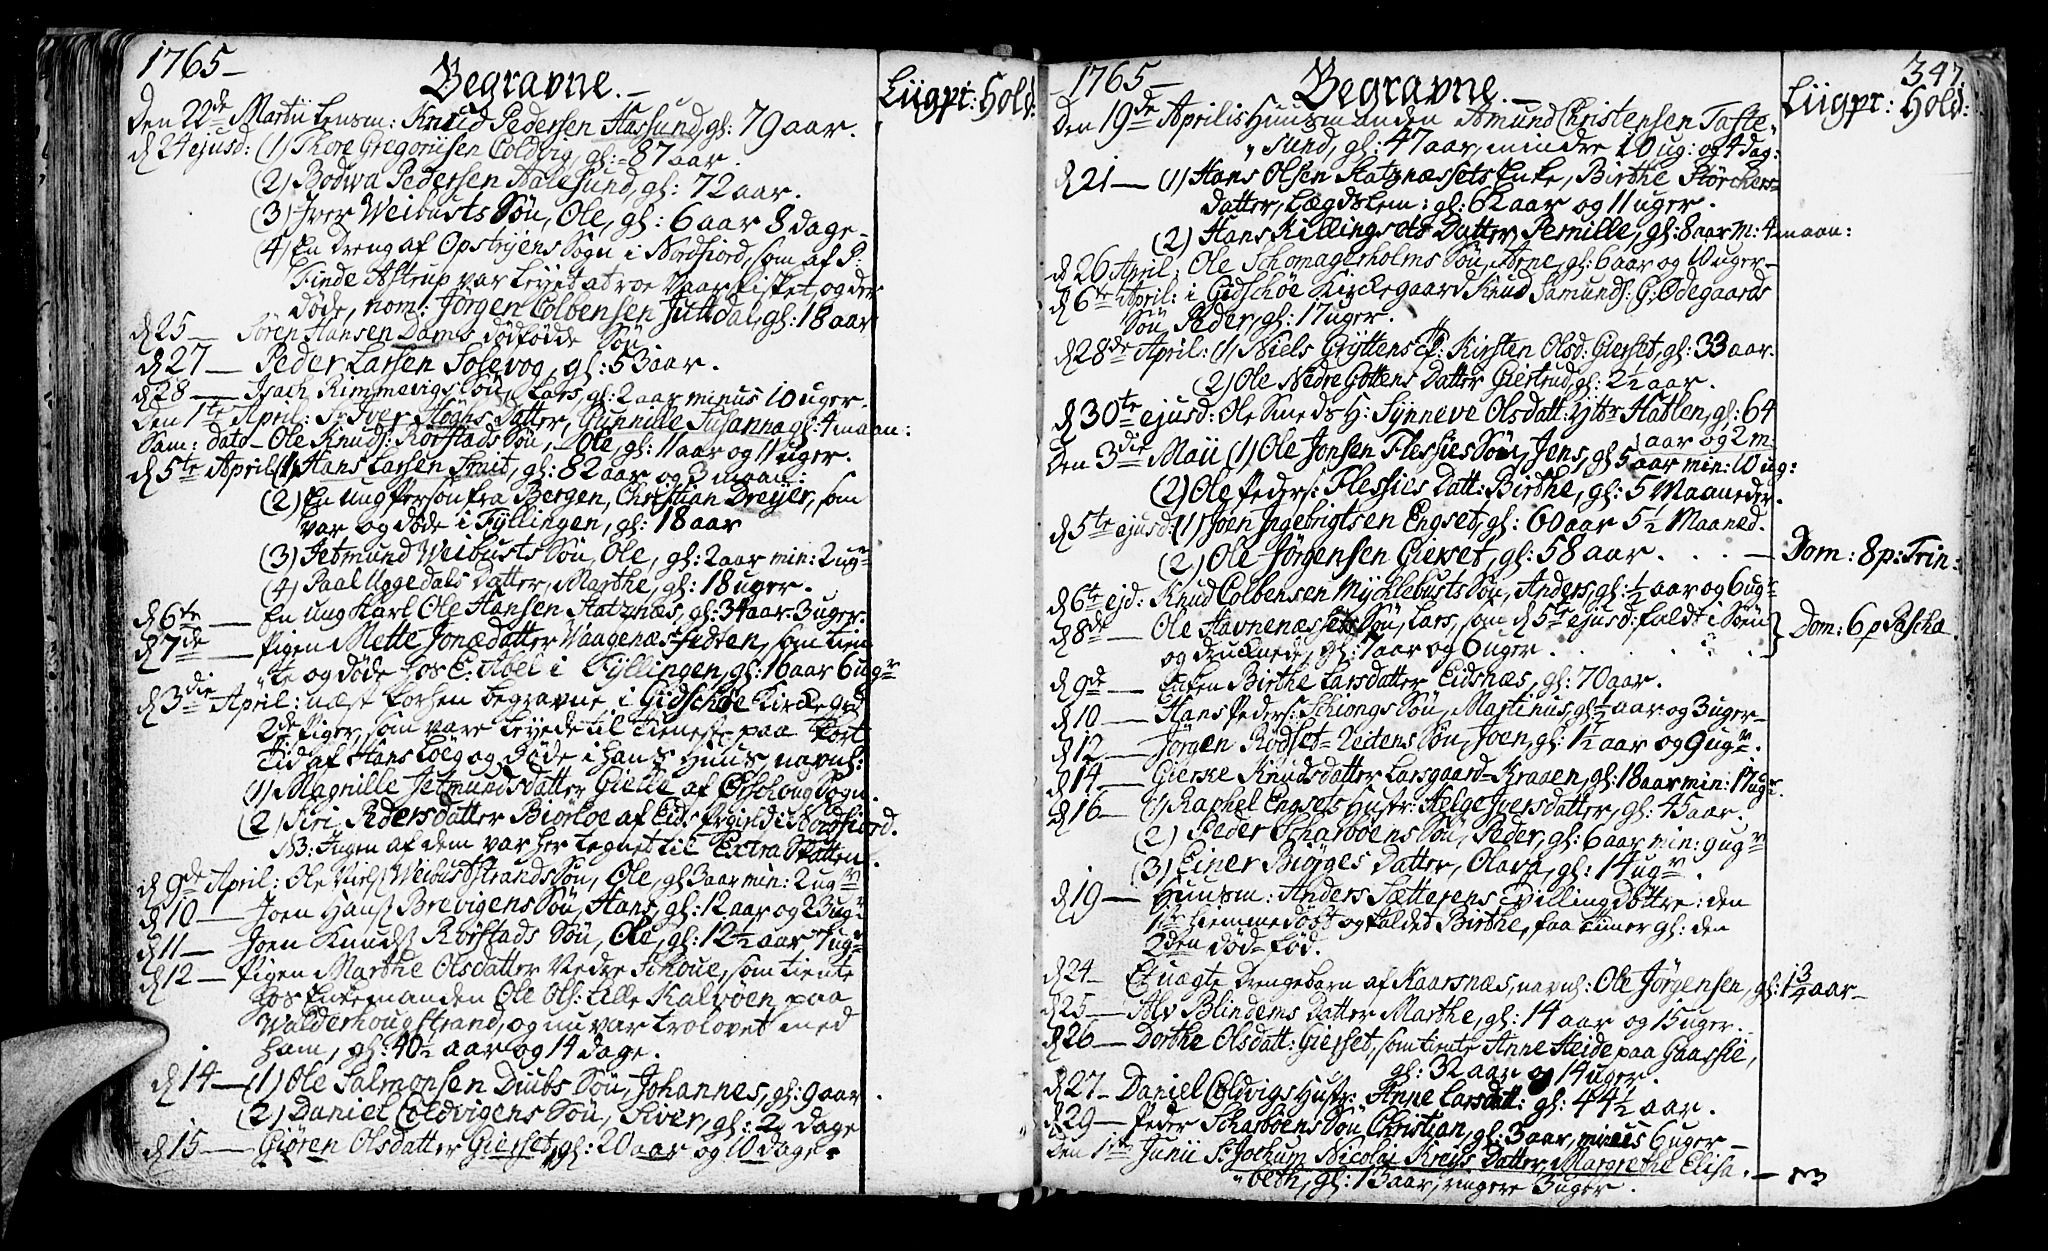 1765 –
Begravne. –
Liigpr: Hold:
Den 22de Martii Lensm: Knud Pedersen Hassund, gl: 79 aar.
d 24 ejusd: (1) Thore Gregoriusen Coldvig, gl: 87 aar.
(2) Bodwa Pedersen Aalesund, gl: 72 aar.
(3) Iver Weibusts Søn, Ole, gl: 6 aar 8 dage –
(4) En dreng af Opstryens Sogn i Nordfiord, som af P:
Finde Astrup var leyet at roe Vaar fisket, og der
døde, nom: Jørgen Colbensen Juldal, gl: 18 aar
d 25 — Søren Hansen Dams dødfødde Søn
d 27 — Peder Larsen Solevog, gl: 53 aar.
d 28 — Isach Rimmevigs Søn, Lars, gl: 2 aar minus 10 uger.
Den 1te April: Sr Iver Høghs datter, Gunnille Susanna gl: 4 maan:
Sam: dato – Ole Knuds: Rørstads Søn, – Ole, gl: 11 aar og 11 uger.
d 5te April (1) Hans Larsen Smit, gl: 82 aar og 3 maan:
(2) En ung Person fra Bergen, Christian Dreyer, som
var og døde i Fyllingen, gl: 18 aar
(3) Jetmund Weibusts Søn Ole, gl: 2 aar min: 2 ugr
(4) Paal Uggedals Datter, Marthe, gl: 18 uger.
d 6te — En ung Karl Ole Hansen Hatznæs, gl: 34 aar 3 uger.
d 7de — Pigen Mette Jonædatter Vaagenæs-Sedsen, som tien
te og døde hos E: Abel i Fyllingen, gl: 16 aar 6 ugr
d 3die April: næst forhen begravne i Gidschøe Kirckegrd
2de Piger, som vare leyede til tieneste paa kort
Tid af Hans Løeg og døde i hans Huus, navnl:
(1) Magnille Jetmundsdatter Gielle af Ørschoug Sogn.
(2) Siri Pedersdatter Biørløe af Eids Prgield i Nordfiord.
NB: Ingen af dem var her tegnet til Extra Skatten.
d 9de April: Ole Niels: Weibustsstrands Søn, Ole, gl: 3 aar min: 2 ugr
d 10 — Joen Hans: Brevigens Søn, Hans, gl: 12 aar og 23 ugr
d 11 — Joen Knuds: Rørstads Søn, Ole, gl: 12½ aar 7 ugr
d 12 — Pigen Marthe Olsdatter Nedre Schoue, som tiente
hos Enkemanden Ole Ols: Lille Kalvøen, paa
Walderhougstrand, og nu var trolovet med
ham, gl: 40½ aar og 14 dage.
d 14 — (1) Ole Salmonsen Duubs Søn, Johannes, gl: 9 aar
(2) Daniel Coldvigens Søn, Siver, gl: 29 dage
d 15 — Giøren Olsdatter Gierset, gl: 20 aar og 10 dage.
– 1765 –
Begravne. –
347.
Liigpr: Hold:
Den 19de Aprilis Huusmanden Amund Christensen Tafte-
sund, gl: 47 aar, mindre 10 ug: og 4 dag:
d 21 — (1) Hans Olsen Hatznæssets Enke, Birthe Størchers
datter, Lægdslem: gl: 62 aar og 11 uger.
(2) Hans Killingsets Datter Pernille, gl: 8 aar m: 4 maan:
d 26 April: Ole Schomagerholms Søn, Arne, gl: 6 aar og 10 uger –
d 6te April: i Gidschøe Kirckegaard Knud Samunds: G: Ødegaards
Søn Peder, gl: 17 uger.
d 28de April: (1) Niels Gryttens H: Kirsten Olsd: Gierset, gl: 33 aar.
(2) Ole Nedre Gottens Datter Giertrud, gl: 2½ aar.
d 30te ejusd: Ole Smeds H: Synneve Olsdatt: Ytter Hatlen, gl: 64
aar og 2 m:
Den 3die Maii (1) Ole Jonsen Flessies Søn, Jens, gl 5 aar min: 10 ug:
(2) Ole Peders: Flessies Datt: Birthe, gl: 5 Maaneder.
d 5te ejusd: (1) Joen Ingebrigtsen Engset, gl: 60 aar 5½ Maaned.
(2) Ole Jørgensen Gierset, gl: 58 aar. . . . — Dom: 8 p: Trin:
d 6te ejd: Knud Colbensen Mycklebusts Søn, Anders, gl: ½ aar og 6 ugr
d 8de — Ole Havnenæssets Søn, Lars, som d 5te ejusd: faldt i Søen
og druknede, gl: 7 aar og 6 uger. . . . . . Dom: 6 p Pascha.
d 9de — Enken Birthe Larsdatter Eidsnæs, gl: 70 aar.
d 10 — Hans Peders: Schiongs Søn, Martinus, gl: ½ aar og 3 uger –
d 12 — Jørgen Rødset-Reitens Søn, Joen, gl: 1½ aar og 9 ugr.
d 14 — Gierske Knudsdatter Larsgaard-Kraaen, gl: 18 aar min: 17 ugr.
d 16 — (1) Raphel Engsets Hustr: Helge Iversdatter, gl: 45 aar.
(2) Peder Scharbøens Søn, Peder, gl: 6 aar min: 9 ugr
(3) Einer Biørges Datter, Olava, gl: 14 ugr.
d 19 — Huusm: Anders Sætterens Tvillingdøttre: den
1te hiemmedøbt og kaldet Birthe, faa timer gl: den
2den død-fød.
d 24 — Et uægte Drengebarn af Kaarsnæs, navnl: Ole Jørgensen, gl: 1¾ aar –
d 25 — Alv Blindems Datter Marthe, gl: 14 aar og 15 uger.
d 26 — Dorthe Olsdatt: Gierset, som tiente Anne Heide paa Gaassie,
gl: 32 aar og 14 uger.
d 27 – Daniel Coldvigs Hustr: Anne Larsdatt: gl: 44½ aar.
d 29 — Peder Scharbøens Søn Christian, gl: 3 aar, minus 6 uger –
Den 1te Junii Sr Jochum Nicolai Kreys Datter, Margrethe Elisa-
beth, gl: 13 aar, ringere 3 uger.